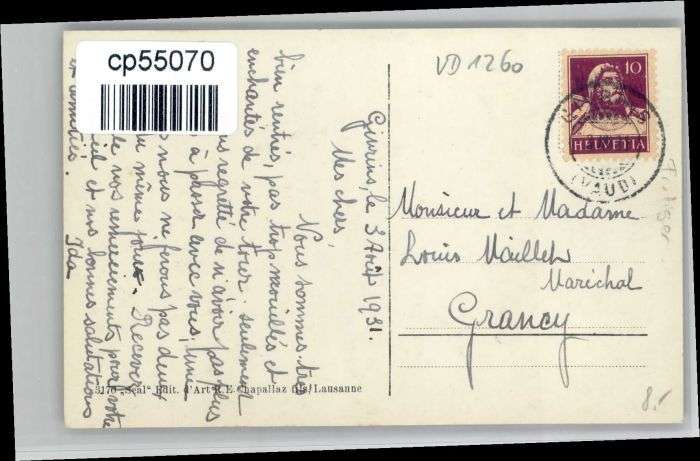 cp55070
VD 1260
10
HELVETIA
(VAUD)
Givrins, le 3 Août 1931.
Mes chers,
Nous sommes
bien rentrés, pas trop mouillés et
enchantés de notre tour. seulement
regretté de n'avoir pas plus
à passer avec vous, une
nous ne ferons pas deux
même jour. Recevez
de nos remerciements pour votre
et nos bonnes salutations
et amitiés. Ida
Monsieur et Madame
Louis Maillet
Maréchal
Grancy
3170 „Séal" Edit. d'Art R. E. Chapallaz fils, Lausanne
8.-